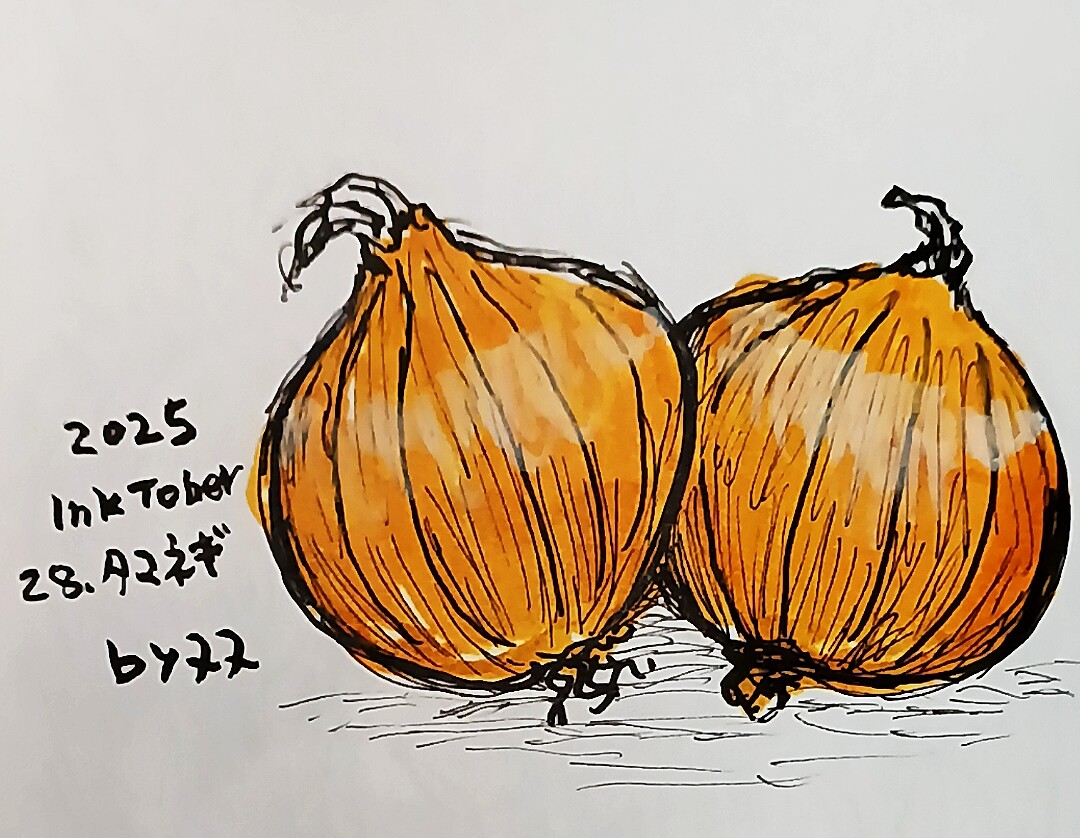 2025
InkTober
28.タマネギ
byヌヌ